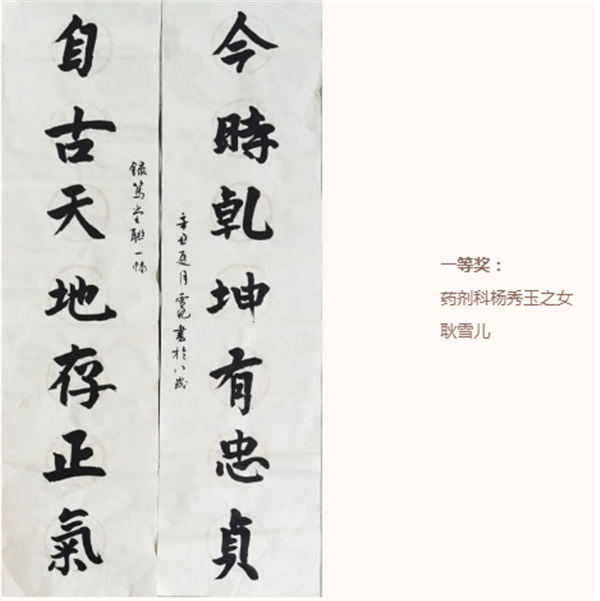 自古天地存正氣
錄篤堂聯一幅
今時乾坤有忠貞
辛丑夏月雪兒書於八歲
一等奖：
药剂科杨秀玉之女
耿雪儿